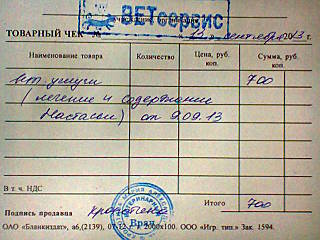 ВЕТсервис
учреждение, организация
ТОВАРНЫЙ ЧЕК №
12 » сентября 2013 г.
Наименование товара
Количество
Цена, руб. коп.
Сумма, руб. коп.
вет услуги 700
( лечение и содержание
Настасьи) от 9.09.13
В т. ч. НДС
Итого 700
Подпись продавца
Врач
ОАО «Бланкиздат», а6,(2139), 07-12 г. 2000х100. ООО «Игр. тип.» Зак. 1594.